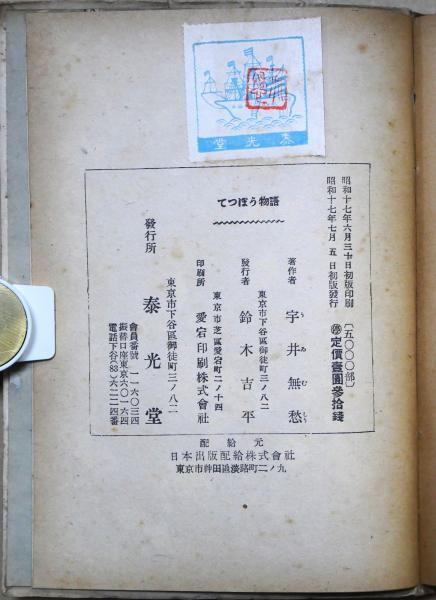 泰光堂
昭和十七年六月三十日初版印刷
昭和十七年七月五日初版發行
(五〇〇〇部)
㊞定價壹圓參拾錢
てつぽう物語
著作者 宇井無愁
うゐむしう
東京市下谷區御徒町三ノ八二
發行者 鈴木吉平
東京市芝區愛宕町二ノ十四
印刷所 愛宕印刷株式會社
東京市下谷區御徒町三ノ八二
發行所 泰光堂
會員番號 一一六〇三四
振替口座東京六〇一六四
電話下谷(83)六二二四番
配給元
日本出版配給株式會社
東京市神田區淡路町二ノ九